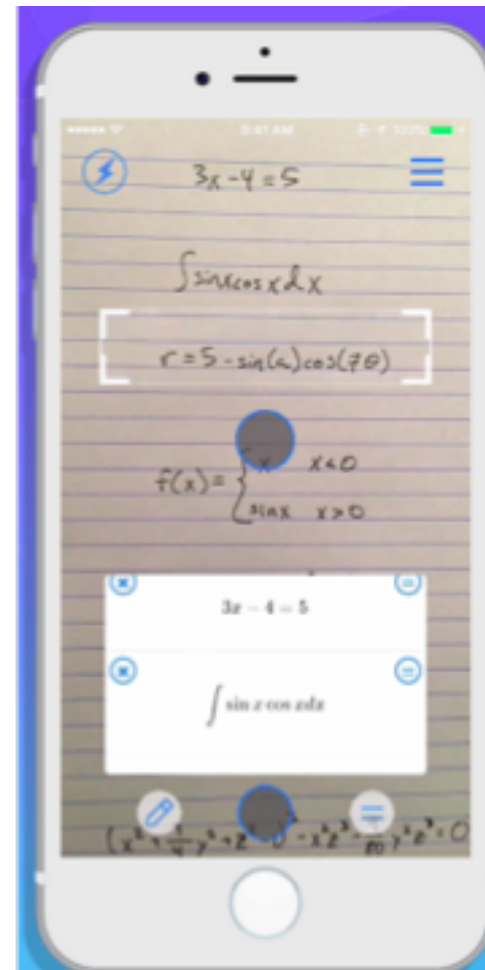 9:41 AM 100%
3x-4=5
∫sinxcosxdx
r=5-sin(a)cos(7θ)
f(x)={x x<0
sinx x>0
3x − 4 = 5
∫ sin x cos xdx